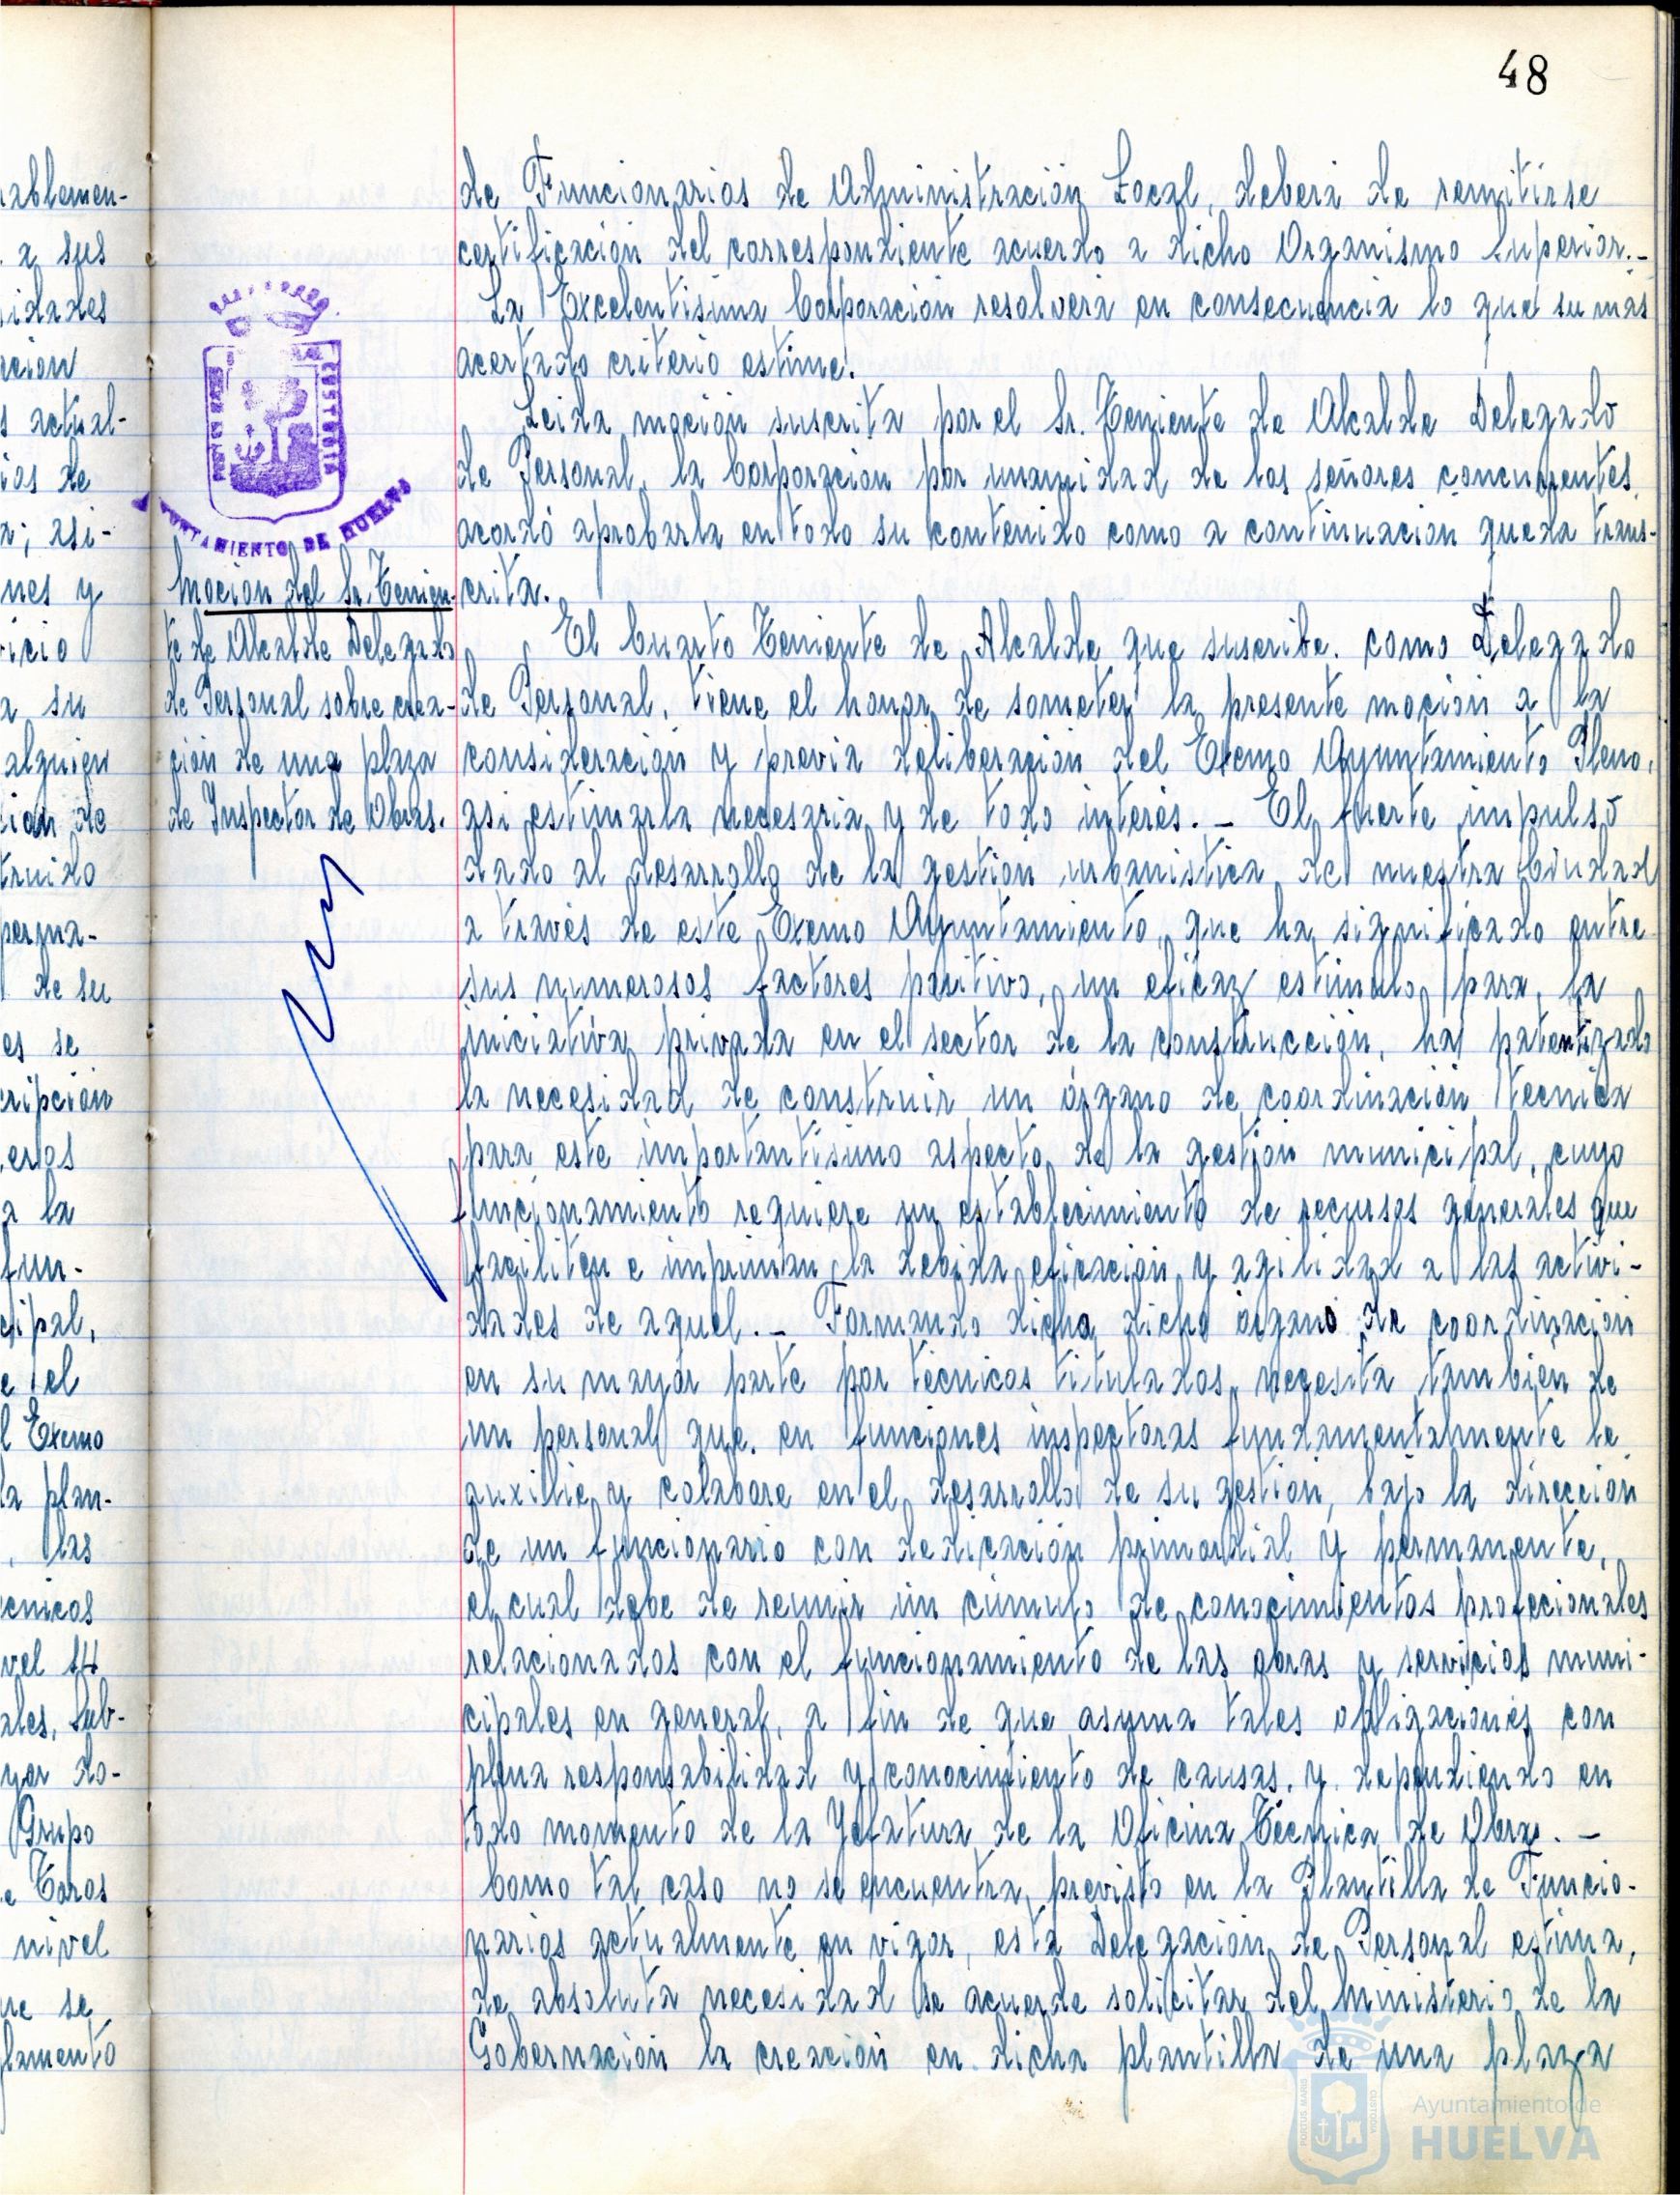 48
de Funcionarios de Administración Local, deberá de remitirse
certificación del correspondiente acuerdo a dicho Organismo Superior.-
La Excelentisima Corporación resolverá en consecuencia lo que su mas
acertado criterio estime.
Leida moción suscrita por el Sr. Teniente de Alcalde Delegado
de Personal, la Corporación por unamidad de los señores concurrentes
acordó aprobarla en todo su contenido como a continuación queda trans-
crita.
El Cuarto Teniente de Alcalde que suscribe. como Delegado
de Personal, tiene el honor de someter la presente moción a la
consideración y previa deliberación del Excmo Ayuntamiento Pleno,
asi estimarla necesaria y de todo interés. - El fuerte impulso
dado al desarrollo de la gestión urbanistica de nuestra Ciudad
a través de este Excmo Ayuntamiento, que ha significado entre
sus numerosos factores positivo, un eficaz estimulo para la
iniciativa privada en el sector de la construcción, ha patentizado
la necesidad de construir un órgano de coordinación tecnica
para este importantisimo aspecto de la gestión municipal, cuyo
funcionamiento requiere un establecimiento de recursos generales que
faciliten e impriman la debida eficacion y agilidad a las activi-
dades de aquel. - Formando dicho dicho órgano de coordinación
en su mayor parte por técnicos titulados, necesita tambien de
un personal que. en funciones inspectoras fundamentalmente le
auxilie y colabore en el desarrollo de su gestión, bajo la dirección
de un funcionario con dedicación primordial y permanente,
el cual debe de reunir un cúmulo de conocimientos profecionales
relacionados con el funcionamiento de las obras y servicios muni-
cipales en general, a fin de que asuma tales obligaciones con
plena responsabilidad y conocimiento de causas. y dependiendo en
todo momento de la Jefatura de la Oficina Técnica de Obras. -
Como tal caso no se encuentra previsto en la Plantilla de Funcio-
narios actualmente en vigor, esta Delegación de Personal estima,
de absoluta necesidad se acuerde solicitar del Ministerio de la
Gobernación la creación en dicha plantilla de una plaza
Moción del Sr. Tenien-
te de Alcalde Delegado
de Personal sobre crea-
ción de una plaza
de Inspector de Obras.
AYUNTAMIENTO DE HUELVA
ablemen-
a sus
idades
ación
s actual-
ios de
a; asi-
nes y
icio
a su
alguien
cion de
truido
perma-
de su
es se
cripción
eros
a la
fun-
cipal,
e el
l Excmo
la plan-
, las
écnicos
vel 14
ales, Sub-
yor do-
Grupo
e Toros
nivel
ue se
glamento
PORTUS MARIS CUSTODIA
Ayuntamiento de
HUELVA